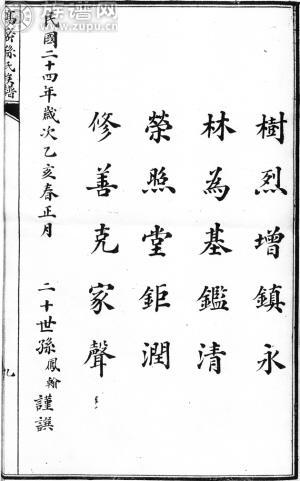 樹烈增鎮永
林為基鑑清
榮照堂鉅潤
修善克家聲
民國二十四年歲次乙亥春正月
二十世孫鳳翰謹譔
高密孫氏族譜
九
族谱网
www.zupu.cn